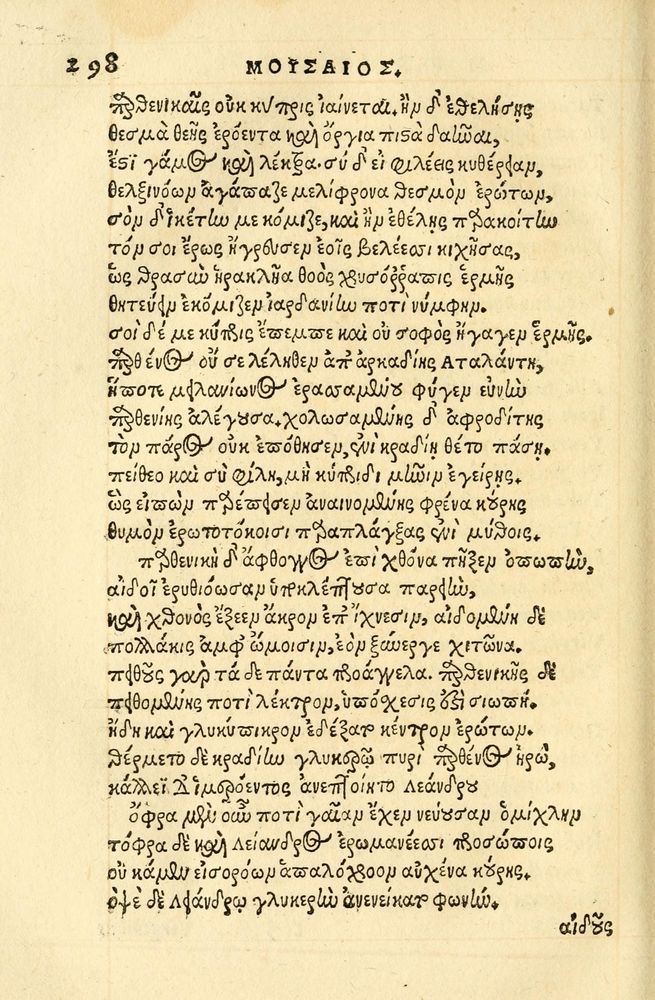 298 ΜΟΥΣΑΙΟΣ.
παρθενικαῖς οὐκ κυπρις ἰαίνεται. ἢν δ' ἐθελήσῃς
θεσμὰ θεῆς ἐρόεντα καὶ ὄργια πιστὰ δαῆναι,
ἔστι γάμος καὶ λέκτρα. σύ δ' εἰ φιλέεις κυθέρειαν,
θελξινόων ἀγάπαζε μελίφρονα θεσμὸν ἐρώτων,
σὸν δ' ἱκέτην με κόμιζε, καὶ ἢν ἐθέλῃς παρακοίτην
τόν σοι ἔρως ἤγρευσεν ἑοῖς βελέεσσι κιχήσας,
ὡς θρασὺν ἡρακλῆα θοὸς χρυσόρραπις ἑρμῆς
θητεύειν ἐκόμιζεν ἰαρδανίην ποτὶ νύμφην.
σοὶ δέ με κύπρις ἔπεμπε καὶ οὐ σοφὸς ἤγαγεν ἑρμῆς.
παρθένος οὔ σε λέληθεν ἀπ' ἀρκαδίης Αταλάντη,
ἥποτε μειλανίωνος ἐρασσαμένου φύγεν εὐνὴν
παρθενίης ἀλέγουσα. χολωσαμένης δ' ἀφροδίτης
τὸν πάρος οὐκ ἐπόθησεν, ἐνὶ κραδίῃ θέτο πάσῃ.
πείθεο καὶ σὺ φίλη, μὴ κύπριδι μῆνιν ἐγείρῃς.
ὣς εἰπὼν παρέπεισεν ἀναινομένης φρένα κούρης
θυμὸν ἐρωτοτόκοισι παραπλάγξας ἐνὶ μύθοις.
παρθενικὴ δ' ἄφθογγος ἐπὶ χθόνα πῆξεν ὀπωπὴν,
αἰδοῖ ἐρυθιόωσαν ὑποκλέπτουσα παρειὴν,
καὶ χθονὸς ἔξεεν ἄκρον ἐπ' ἴχνεσιν, αἰδομένη δὲ
πολλάκις ἀμφ' ὤμοισιν, ἑὸν ξυνεργε χιτῶνα.
πειθοῦς γὰρ τά δε πάντα προάγγελα. παρθενικῆς δὲ
πειθομένης ποτὶ λέκτρον, ὑπόσχεσις ἐστὶ σιωπή.
ἤδη καὶ γλυκύπικρον ἐδέξατο κέντρον ἐρώτων.
θέρμετο δὲ κραδίην γλυκερῷ πυρὶ παρθένος ἡρὼ,
κάλλεϊ δ' ἱμερόεντος ἀνεπτοίητο λεάνδρου
ὄφρα μὲν οὖν ποτὶ γαῖαν ἔχεν νεύουσαν ὁμίχλην
τόφρα δὲ καὶ λείανδρος ἐρωμανέεσσι προσώποις
οὐ κάμεν εἰσορόων ἁπαλόχροον αὐχένα κούρης.
ὀψὲ δὲ λειάνδρῳ γλυκερὴν ἀνενείκατο φωνὴν.
αἰδοῦς